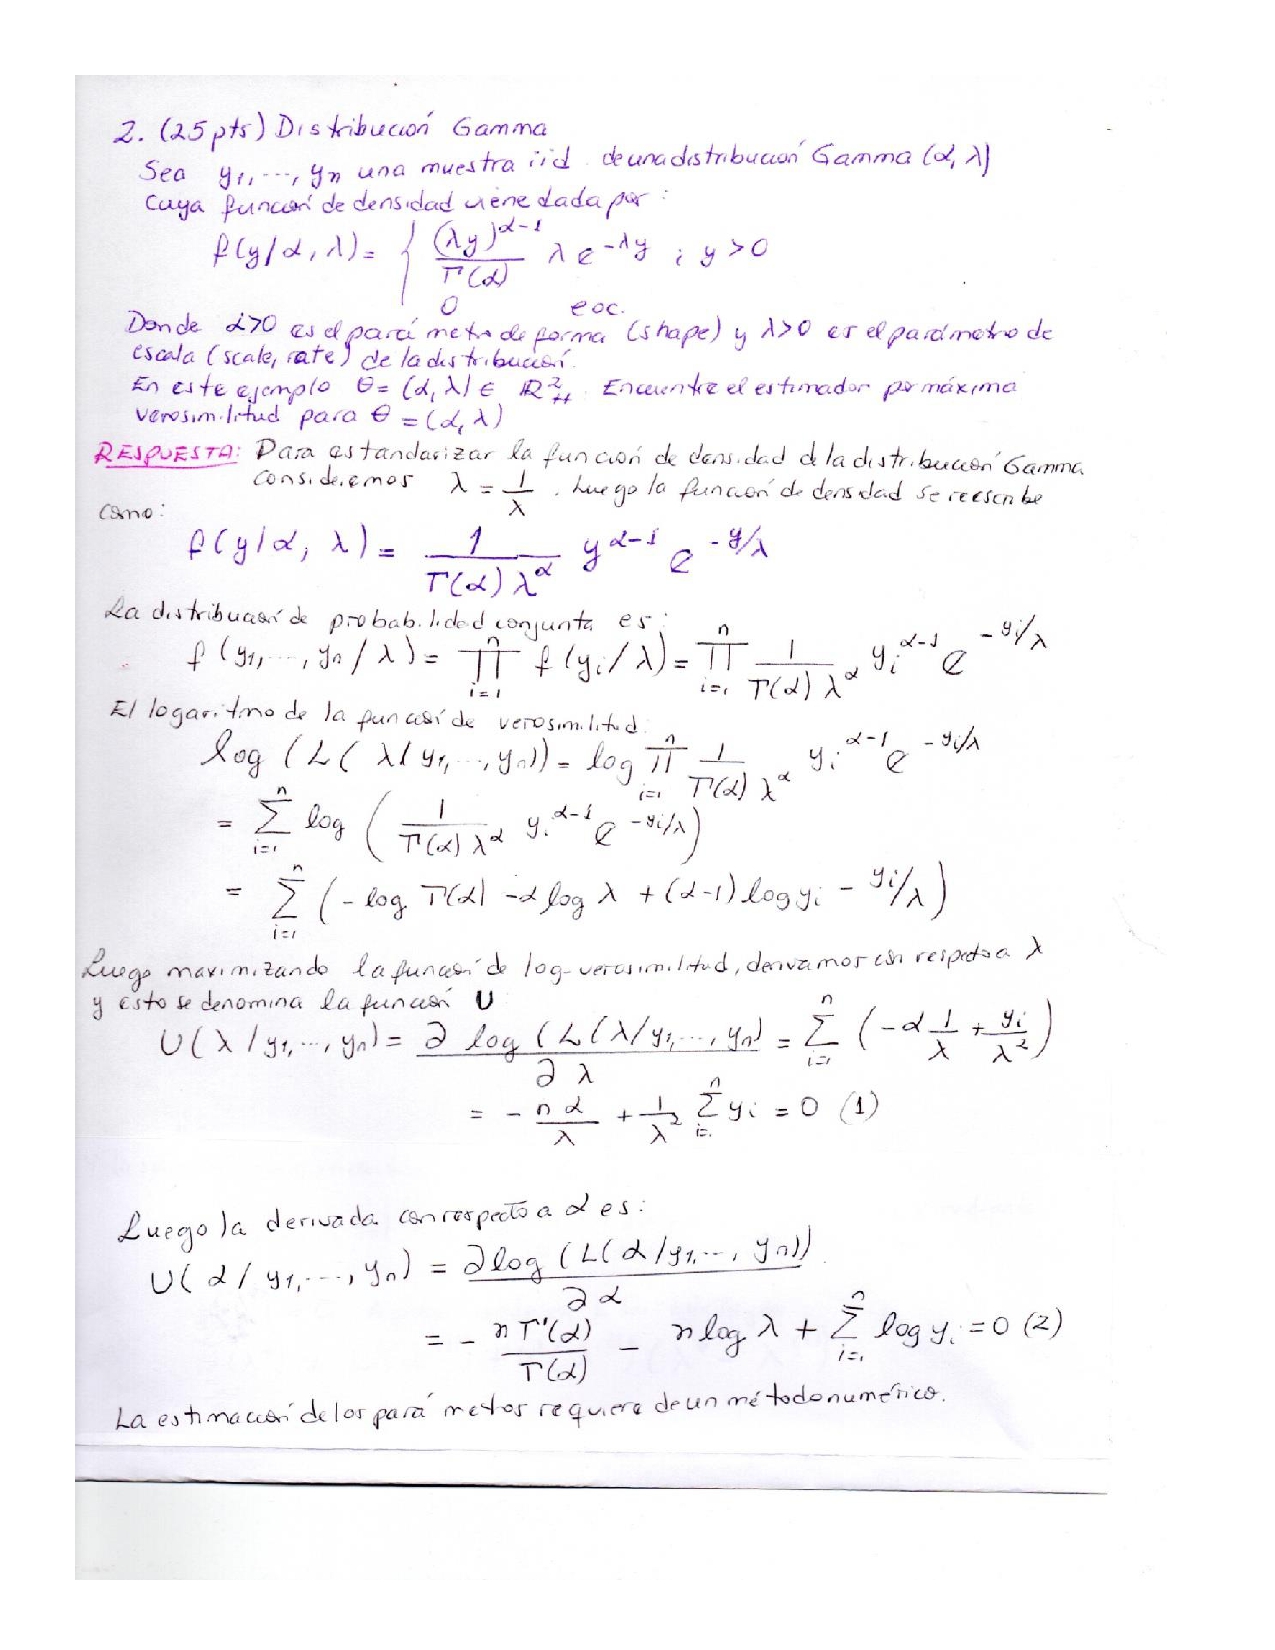 2. (25 pts) Distribución Gamma
Sea y₁, ..., yₙ una muestra iid. de una distribución Gamma (α, λ)
Cuya función de densidad viene dada por:
f(y/α, λ) = { (λy)^(α-1) / Γ(α) λ e^(-λy) ; y > 0
0 eoc.
Donde α>0 es el parámetro de forma (shape) y λ>0 es el parámetro de
escala (scale, rate) de la distribución.
En este ejemplo θ = (α, λ) ∈ ℝ²₊₊. Encuentre el estimador por máxima
verosimilitud para θ = (α, λ)
RESPUESTA: Para estandarizar la función de densidad de la distribución Gamma
consideremos λ = 1/λ. Luego la función de densidad se reescribe
como:
f(y/α, λ) = 1 / (Γ(α) λ^α) y^(α-1) e^(-y/λ)
La distribución de probabilidad conjunta es:
f(y₁, ..., yₙ / λ) = ∏_{i=1}^{n} f(yᵢ/λ) = ∏_{i=1}^{n} 1 / (Γ(α) λ^α) yᵢ^(α-1) e^(-yᵢ/λ)
El logaritmo de la función de verosimilitud:
log (L(λ/y₁, ..., yₙ)) = log ∏_{i=1}^{n} 1 / (Γ(α) λ^α) yᵢ^(α-1) e^(-yᵢ/λ)
= ∑_{i=1}^{n} log ( 1 / (Γ(α) λ^α) yᵢ^(α-1) e^(-yᵢ/λ) )
= ∑_{i=1}^{n} (- log Γ(α) - α log λ + (α-1) log yᵢ - yᵢ/λ)
Luego maximizando la función de log-verosimilitud, derivamos con respecto a λ
y esto se denomina la función U
U(λ/y₁, ..., yₙ) = ∂ log (L(λ/y₁, ..., yₙ) / ∂λ = ∑_{i=1}^{n} (-α 1/λ + yᵢ/λ²)
= - nα/λ + 1/λ² ∑_{i=1}^{n} yᵢ = 0 (1)
Luego la derivada con respecto a α es:
U(α/y₁, ..., yₙ) = ∂ log (L(α/y₁, ..., yₙ)) / ∂α
= - n Γ'(α) / Γ(α) - n log λ + ∑_{i=1}^{n} log yᵢ = 0 (2)
La estimación de los parámetros requiere de un método numérico.